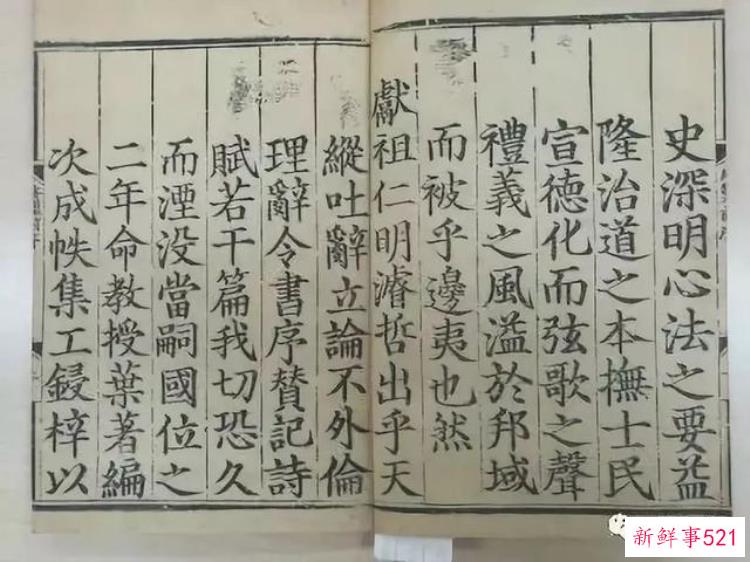 史深明心法之要益
隆治道之本撫士民
宣德化而弦歌之聲
禮義之風溢於邦域
而被乎邊夷也然
獻祖仁明濬哲出乎天
縱吐辭立論不外倫
理辭令書序贊記詩
賦若干篇我切恐久
而湮没當嗣國位之
二年命教授葉著編
次成帙集工鋟梓以
新鲜事521